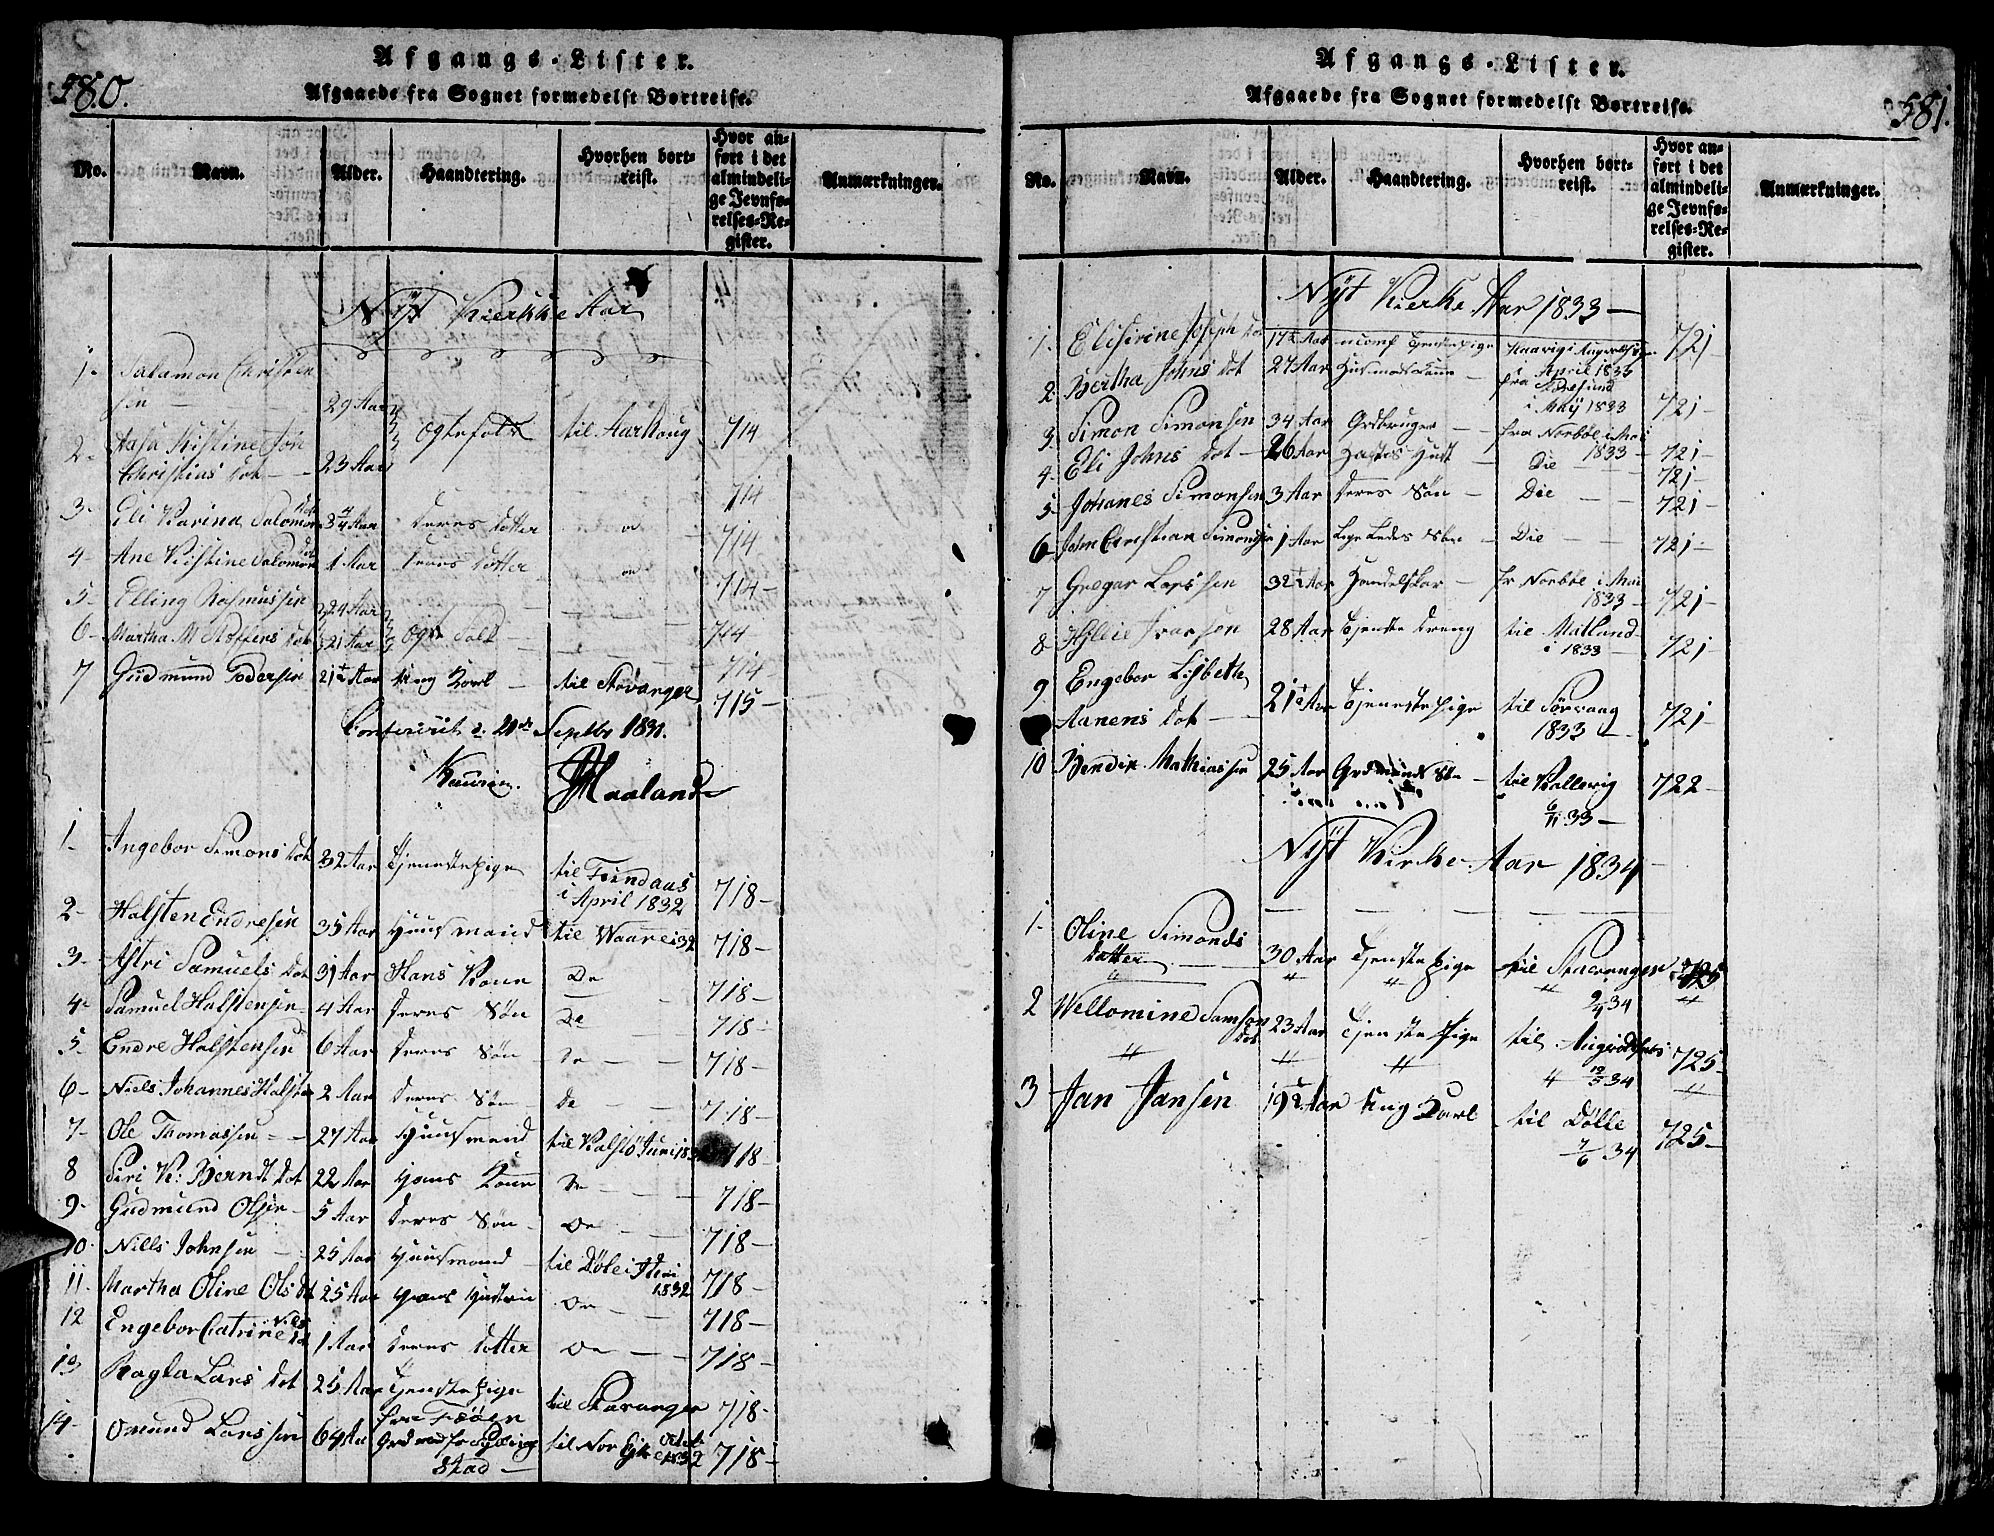 580.
Afgangs-Lister.
Afgaaede fra Sognet formedelst Bortreise.
No. Navn. Alder. Haandtering. Hvorhen bortreist. Hvor anført i det almindelige Jevnførelses-Register. Anmærkninger.
Nÿt Kierkke Aar
1- Salamon Christen
sen — 29 Aar
Ogtefolk til Aarhoug 714
2- Aasa Kistine
Christias dot — 23 Aar 714
3- Eli Karina Salomon dot 3/4 Aar deres dotter do 714
4- Ane Kistine Salomon dot 1 Aar deres dotter do 714-
5- Elling Rasmussen 24 Aar
6- Martha M Stoffers dot 21 Aar Ogte Folk — 714
714-
7 Gudmund Pedersen 21½ Aar ung Karl — til Stavanger 715-
Conferirt d. 21de Septbr 1831.
Maaland
1- Ingebor Simons dot 32 Aar Tjenestepige til Tendaas
i April 1832 718-
2- Holsten Endresen 35 Aar Huusmand til Waare i 32 718-
3- Astri Samuels dot 31 Aar Hans Kone De 718-
4- Samuel Holstensen 4 Aar deres Søn De 718-
5- Endre Holstensen 6 Aar deres Søn De 718-
6- Niels Johannes Holsten 2 Aar deres Søn De 718-
7- Ole Thomassen — 27 Aar Huusmand til Kalstö Juni 18 718-
8 Siri K: Berndt dot 22 Aar Hans Kone De 718-
9- Gudmund Olsen — 5 Aar deres Søn De 718-
10- Nills Johnsen — 25 Aar Huusmand til Döle i
1832 718-
11- Martha Oline Ols dt 25 Aar Hans Hustrue De 718-
12 Engebor Catrine Nils dot 1 Aar deres dotter De 718-
13 Ragla Lars dot 25 Aar Tjenstepige
fra til Stavanger 718-
14- Omund Larssen 64 Aar
Stad — til Nor 1832 718-
581.
Afgangs-Lister.
Afgaaede fra Sognet formedelst Bortreise.
No. Navn. Alder. Haandtering. Hvorhen bortreist. Hvor anført i det almindelige Jevnførelses-Register. Anmærkninger.
Nÿt Kierke Aar 1833 —
1. Elisirine Joseph dot 17½ Aar Tjenstepige
April 1833 721-
2 Bertha Johns dot 27 Aar Husmandskone — fra
i Maÿ 1833 721-
3. Simon Simonsen 34 Aar Grdbruger — fra Norbøe i Mai
1833 — 721-
4- Eli Johns dot — 26 Aar Hustr Die — 721-
5- Johanes Simonsen 3 Aar deres Søn — Die — 721-
6- John Christian Simonsen 1 Aar Ligeledes Søn — Die — 721-
7 Gregar Larssen 32½ Aar Handelskar — fr Norbøe i Mai
1833 — 721-
8 Iversen 28 Aar Tjenste dreng til Matland
i 1833 — 721-
9 Engebor Lisbeth
Aanens dot — 21½ Aar Tjenestepige til Sørvaag
1833 — 721-
10 Bendix Mathiassen 25 Aar Grdmands Søn — til Kallevig 722-
6/11 33 —
Nÿt Kirke Aar 1834 —
1- Oline Simonds
datter 30 Aar Tjenstepige til Stavanger 725
9/4 34
2 Wellomine Samson dot 23 Aar Tjenstepige til 725-
" 12/5 34
3 Jan Jansen 19½ Aar Ung Karl til Dölle
7/6 34 725-